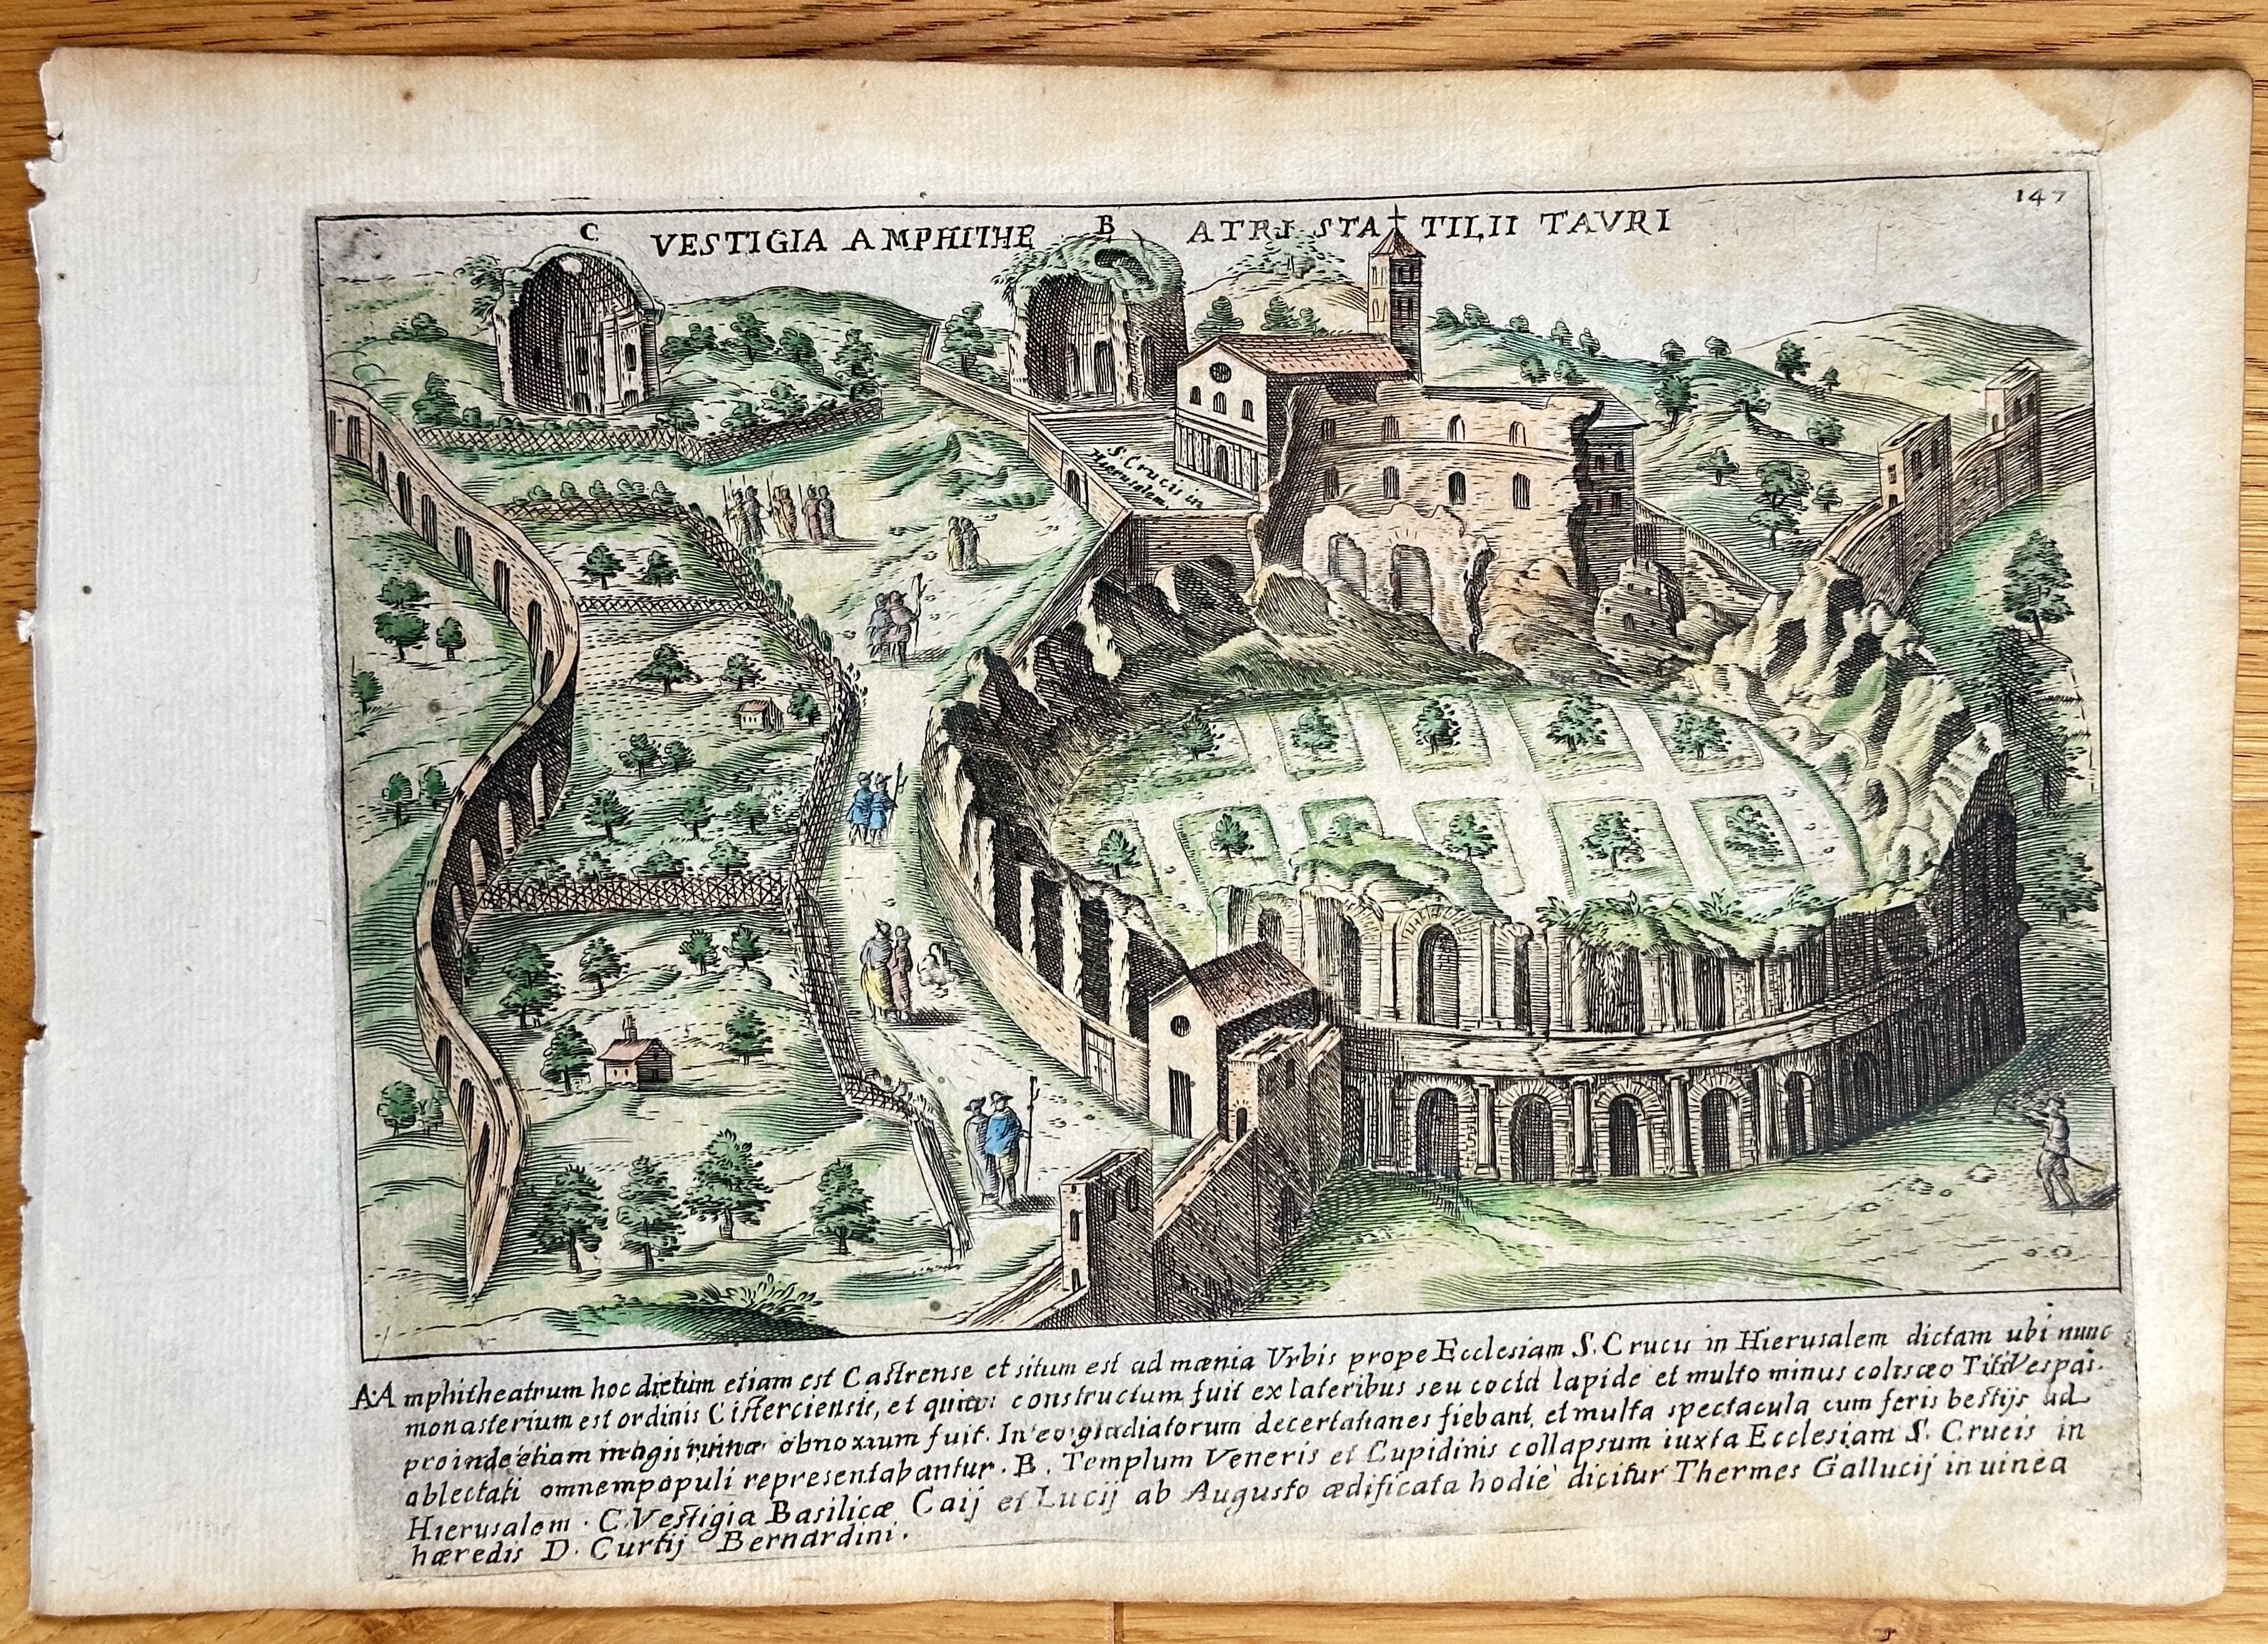 147
C VESTIGIA AMPHITHE B ATRI STATILII TAVRI
S. Crucis in
Hierusalem.
A. Amphitheatrum hoc dictum etiam est Castrense et situm est ad mænia Vrbis prope Ecclesiam S. Crucis in Hierusalem dictam ubi nunc
monasterium est ordinis Cisterciensis, et constructum fuit ex lateribus seu cocto lapide et multo minus coliseo Titi Vespas.
proinde etiam magis ruinæ obnoxium fuit. In eo gladiatorum decertationes fiebant, et multa spectacula cum feris bestijs ad
ablectati omnem populi representabantur. B. Templum Veneris et Cupidinis collapsum iuxta Ecclesiam S. Crucis in
Hierusalem. C. Vestigia Basilicæ Caij et Lucij ab Augusto ædificata hodie dicitur Thermes Gallucij in uinea
hæredis D. Curtij Bernardini.